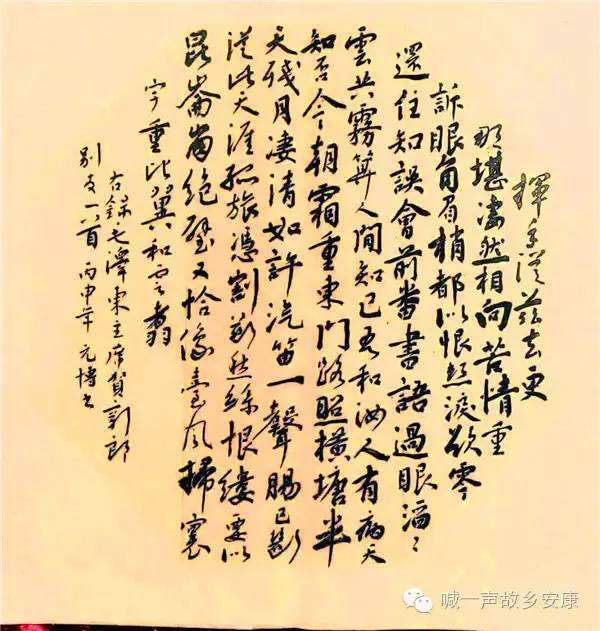 揮手從茲去更
那堪凄然相向苦情重
訴眼角眉梢都似恨熱淚欲零
還住知誤會前番書語過眼滔〻
雲共霧算人間知己吾和汝人有病天
知否今朝霜重東門路照橫塘半
天殘月凄清如許汽笛一聲腸已斷
從此天涯孤旅憑割斷愁絲恨縷要似
昆崙崩絕壁又恰像臺風掃寰
宇重比翼和雲翥
右錄毛澤東主席賀新郎
別友一首 丙申年 元博書
喊一声故乡安康